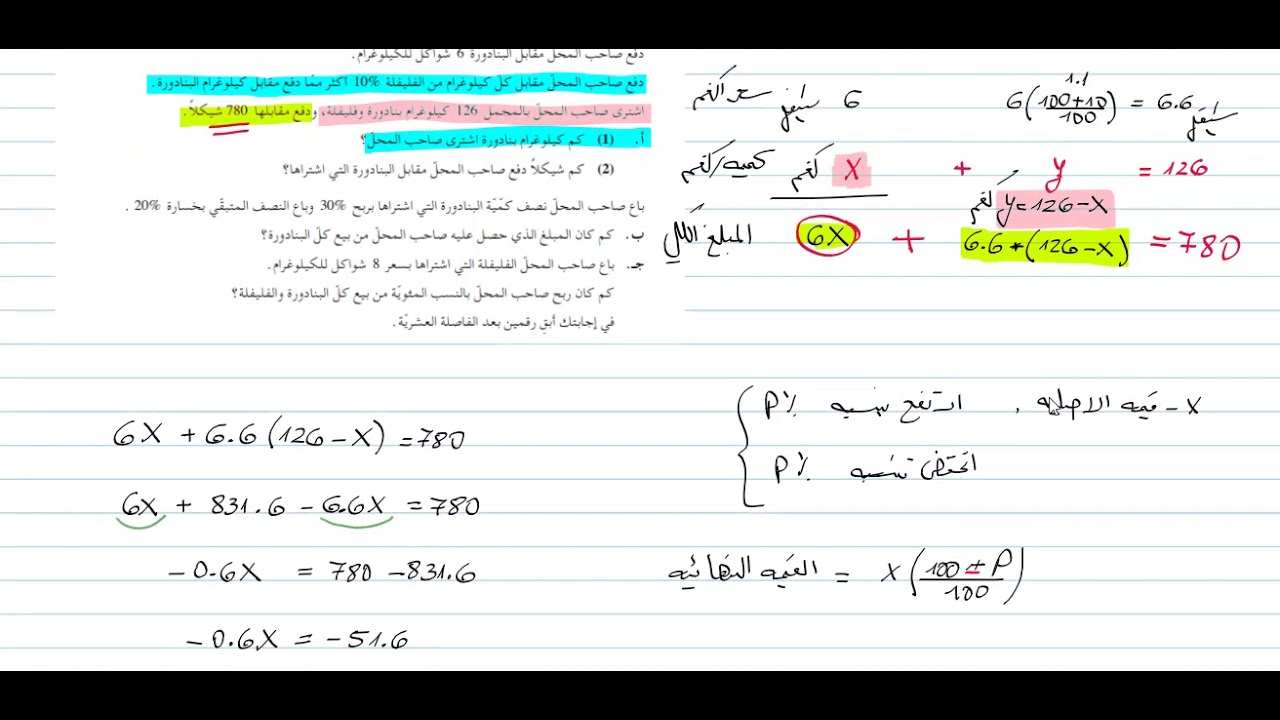 دفع صاحب المحل مقابل البنادورة 6 شواكل للكيلوغرام.
دفع صاحب المحلّ مقابل كلّ كيلوغرام من الفليفلة 10% اكثر ممّا دفع مقابل كيلوغرام البنادورة.
اشترى صاحب المحلّ بالمجمل 126 كيلوغرام بنادورة وفليفلة، ودفع مقابلها 780 شيكلاً.
أ. (1) كم كيلوغرام بنادورة اشترى صاحب المحلّ؟
(2) كم شيكلاً دفع صاحب المحلّ مقابل البنادورة التي اشتراها؟
باع صاحب المحلّ نصف كمّيّة البنادورة التي اشتراها بربح 30% وباع النصف المتبقّي بخسارة 20%.
ب. كم كان المبلغ الذي حصل عليه صاحب المحلّ من بيع كلّ البنادورة؟
جـ. باع صاحب المحلّ الفليفلة التي اشتراها بسعر 8 شواكل للكيلوغرام.
كم كان ربح صاحب المحلّ بالنسب المئويّة من بيع كلّ البنادورة والفليفلة؟
في إجابتك أبقِ رقمين بعد الفاصلة العشريّة.
سعر الكغم 6 شيقل 6(100+10/100) = 6.6 شيقل
1.1
كميه/كغم X كغم + y = 126
y=126-X كغم
المبلغ الكلي 6X + 6.6*(126-X) = 780
X - قيمه الاصليه . ارتفع بنسبه P%
انخفض بنسبه P%
القيمه النهائيه = X(100±P/100)
6X + 6.6(126-X) = 780
6X + 831.6 - 6.6X = 780
-0.6X = 780 - 831.6
-0.6X = -51.6